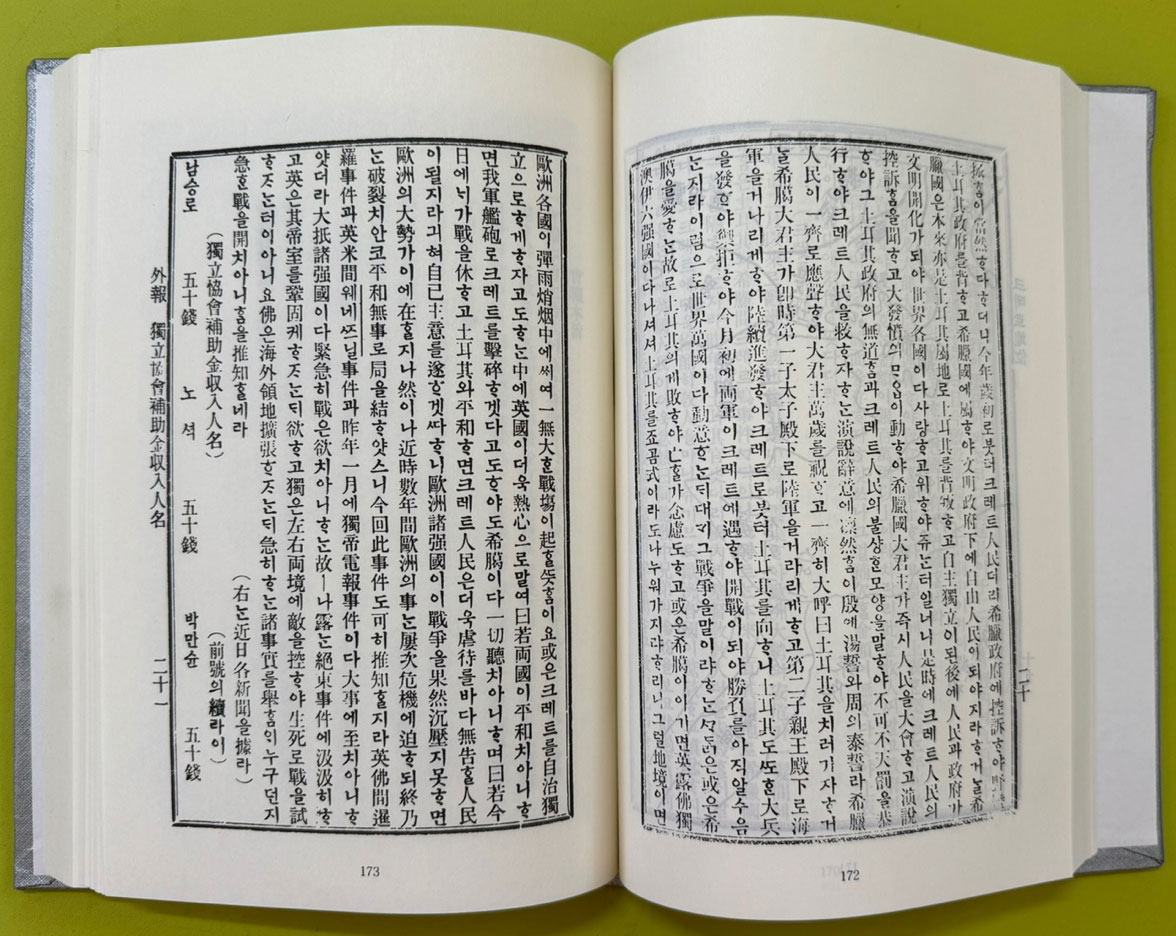 土耳其政府를背ᄒᆞ고希臘國에屬ᄒᆞ야文明政府下에自由人民이되야지라ᄒᆞ거ᄂᆞᆯ希
臘國은本來亦是土耳其屬地로土耳其를背叛ᄒᆞ고自主獨立이된後에人民과政府가
文明開化가되야世界各國이다사랑ᄒᆞ고위ᄒᆞ야쥬ᄂᆞᆫ터일너니是時에크레트人民의
控訴ᄒᆞᆷ을聞ᄒᆞ고大發憤의ᄆᆞ음이動ᄒᆞ야希臘國大君主가즉시人民을大會ᄒᆞ고演說
ᄒᆞ야그土耳其政府의無道ᄒᆞᆷ과크레트人民의불샹ᄒᆞᆫ모양을말ᄒᆞ야不可不天罰을恭
行ᄒᆞ야크레트人民을救ᄒᆞ자ᄒᆞᄂᆞᆫ演說辭意에凛然ᄒᆞᆷ이殷에湯誓와周의泰誓라希臘
人民이一齊로應聲ᄒᆞ야大君主萬歲를祝ᄒᆞ고一齊히大呼曰土耳其을처러가쟈ᄒᆞ거
ᄂᆞᆯ希臘大君主가卽時第一子太子殿下로陸軍을거라리게ᄒᆞ고第二子親王殿下로海
軍을거나리게ᄒᆞ야陸續進發ᄒᆞ야크레트로붓터土耳其를向ᄒᆞ니土耳其도ᄯᅩᄒᆞᆫ大兵
을發ᄒᆞ야禦拒ᄒᆞ야今月初에両軍이크레트에遇ᄒᆞ야開戰이되야勝負를아직알수음
ᄂᆞᆫ지라이럼으로世界萬國이다動意ᄒᆞᄂᆞᆫᄃᆡ대져그戰爭을말이랴ᄒᆞᄂᆞᆫ은或은希
臘을愛ᄒᆞᄂᆞᆫ故로土耳其의게敗ᄒᆞ야亡ᄒᆞᆯ가念慮도ᄒᆞ고或은希臘이이기면英露佛獨
澳伊六强國이다나셔셔土耳其를죠곰式이라도나누워가지랴ᄒᆞ리니그럴地境이면
二十
172
歐洲各國이彈雨焇烟中에ᄡᅥ여一無大ᄒᆞᆫ戰塲이起ᄒᆞᆯᄯᅳᆺᄒᆞᆷ이요或은크레트를自治獨
立으로ᄒᆞ게ᄒᆞ자고도ᄒᆞᄂᆞᆫ中에英國이더욱熱心으로말여曰若両國이平和치아니ᄒᆞ
면我軍艦砲로크레트를擊碎ᄒᆞ겟다고도ᄒᆞ야도希臘이다一切聽치아니ᄒᆞ며曰若今
日에ᄂᆡ가戰을休ᄒᆞ고土耳其와平和ᄒᆞ면크레트人民은더욱虐待를바다無告ᄒᆞᆫ人民
이될지라긔혀自己主意를遂ᄒᆞ겟ᄯᅡᄒᆞ니歐洲諸强國이이戰爭을果然沉壓지못ᄒᆞ면
歐洲의大勢가이에在ᄒᆞᆯ지나然이나近時數年間歐洲의事ᄂᆞᆫ屢次危機에迫ᄒᆞ되終乃
ᄂᆞᆫ破裂치안코平和無事로局을結ᄒᆞ얏스니今回此事件도可히推知ᄒᆞᆯ지라英佛間暹
羅事件과英米間웨네쓰닐事件과昨年一月에獨帝電報事件이다大事에至치아니ᄒᆞ
얏더라大抵諸强國이다緊急히戰은欲치아니ᄒᆞᄂᆞᆫ故ㅣ나露ᄂᆞᆫ絕東事件에汲汲히ᄒᆞ
고英은其帝室를鞏固케ᄒᆞᄌᆞᄂᆞᆫᄃᆡ欲ᄒᆞ고獨은左右両境에敵을控ᄒᆞ야生死로戰을試
ᄒᆞᄌᆞᄂᆞᆫ터이아니요佛은海外領地擴張ᄒᆞᄌᆞᄂᆞᆫᄃᆡ急히ᄒᆞᄂᆞᆫ諸事實를舉ᄒᆞᆷ의누구던지
急ᄒᆞᆫ戰을開치아니ᄒᆞᆷ을推知ᄒᆞᆯ네라　　(右ᄂᆞᆫ近日各新聞을據라)
(獨立協會補助金収入人名)　　(前號의續라이)
남승로　五十錢　노셕　五十錢　박만슌　五十錢
外報　獨立協會補助金収入人名　二十一
173